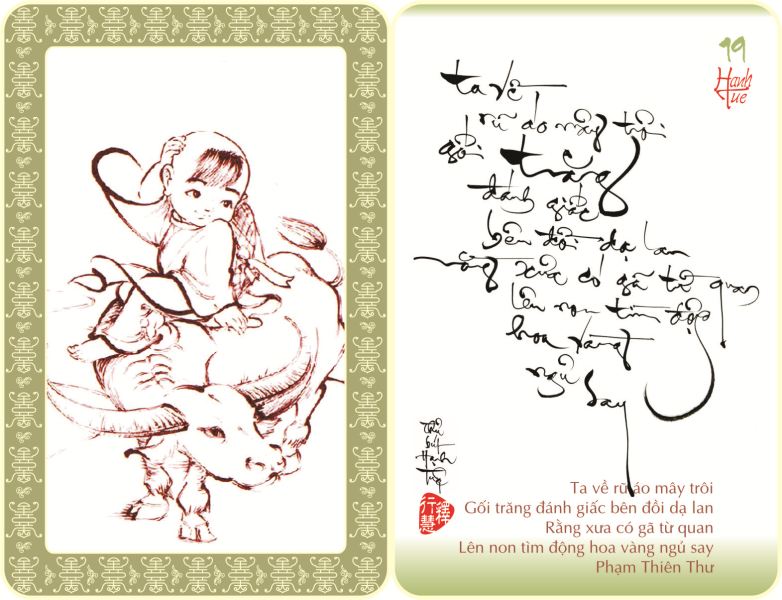 19
Hanh
Tue
ta về
rũ áo mây trôi
gối trăng
đánh giấc
bên đồi dạ lan
rằng xưa có gã từ quan
lên non tìm động
hoa vàng
ngủ say
Thủ
bút
Hạnh
Tuệ
釋行慧
Ta về rũ áo mây trôi
Gối trăng đánh giấc bên đồi dạ lan
Rằng xưa có gã từ quan
Lên non tìm động hoa vàng ngú say
Phạm Thiên Thư